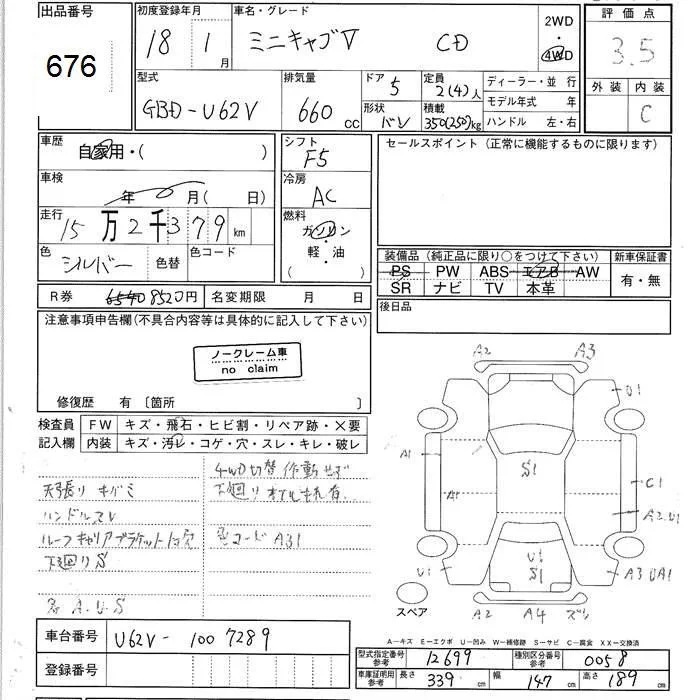 出品番号 初度登録年月 車名・グレード 2WD 評価点
676 18年 1月 ミニキャブV CD ・4WD 3.5
型式 排気量 ドア 5 定員 2(4)人 ディーラー・並行 外装 内装
GBD-U62V 660cc 形状 バン 積載 350(250)kg モデル年式 年 C
ハンドル 左・右
車歴 自家用・( ) シフト F5 セールスポイント(正常に機能するものに限ります)
車検 年 月( 日) 冷房 AC
走行 15万2千379km 燃料 ガソリン・軽油 ( )
色 シルバー 色替 色コード
装備品(純正品に限り○をつけて下さい) 新車保証書
PS PW ABS エアB AW 有・無
SR ナビ TV 本革
R券 6540 8520円 名変期限 月 日 後日品
注意事項申告欄(不具合内容等は具体的に記入して下さい)
ノークレーム車
no claim
修復歴 有 〔箇所 〕
検査員 FW キズ・飛石・ヒビ割・リペア跡・×要
記入欄 内装 キズ・汚レ・コゲ・穴・スレ・キレ・破レ
4WD切替作動せず
天張り キバミ 下廻り オイルもれ有
ハンドルスレ
ルーフキャリアブラケット付穴 色コード A31
下廻り S
A.U.S
A2 A3
U1
A1 S1 C1
A1 A2.U1
U1
U1 S1 A3 UA1
スペア A2 A4 ズレ
A-キズ E-エクボ U-凹み W-補修跡 S-サビ C-腐食 XX-交換済
車台番号 U62V-1007289
登録番号
型式指定番号 参考 12699 種別区分番号 参考 0058
車庫証明用 参考 長さ 339cm 幅 147cm 高さ 189cm